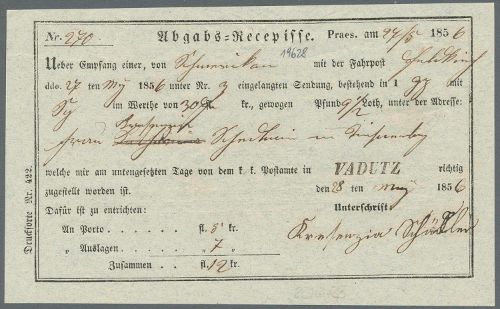 Nr. 270. Abgabs-Recepisse. Praes. am 27/5 1856
19628
Ueber Empfang einer, von Schmerikon mit der Fahrpost Feldkirch
ddo. 27 ten May 1856 unter Nr. 3 eingelangten Sendung, bestehend in 1
im Werthe von 30 fl. kr., gewogen Pfund 9 1/2 Loth, unter der Adresse:
Kresenzia
Frau in
welche mir am untengesetzten Tage von dem k. k. Postamte in VADUTZ richtig
zugestellt worden ist. den 28 ten May 1856
Dafür ist zu entrichten: Unterschrift:
An Porto . . . . . . fl. 5 kr.
„ Auslagen . . . . . „ 7 „
Zusammen . . fl. 12 kr.
Kresenzia Schädler
Druckforte Nr. 422.